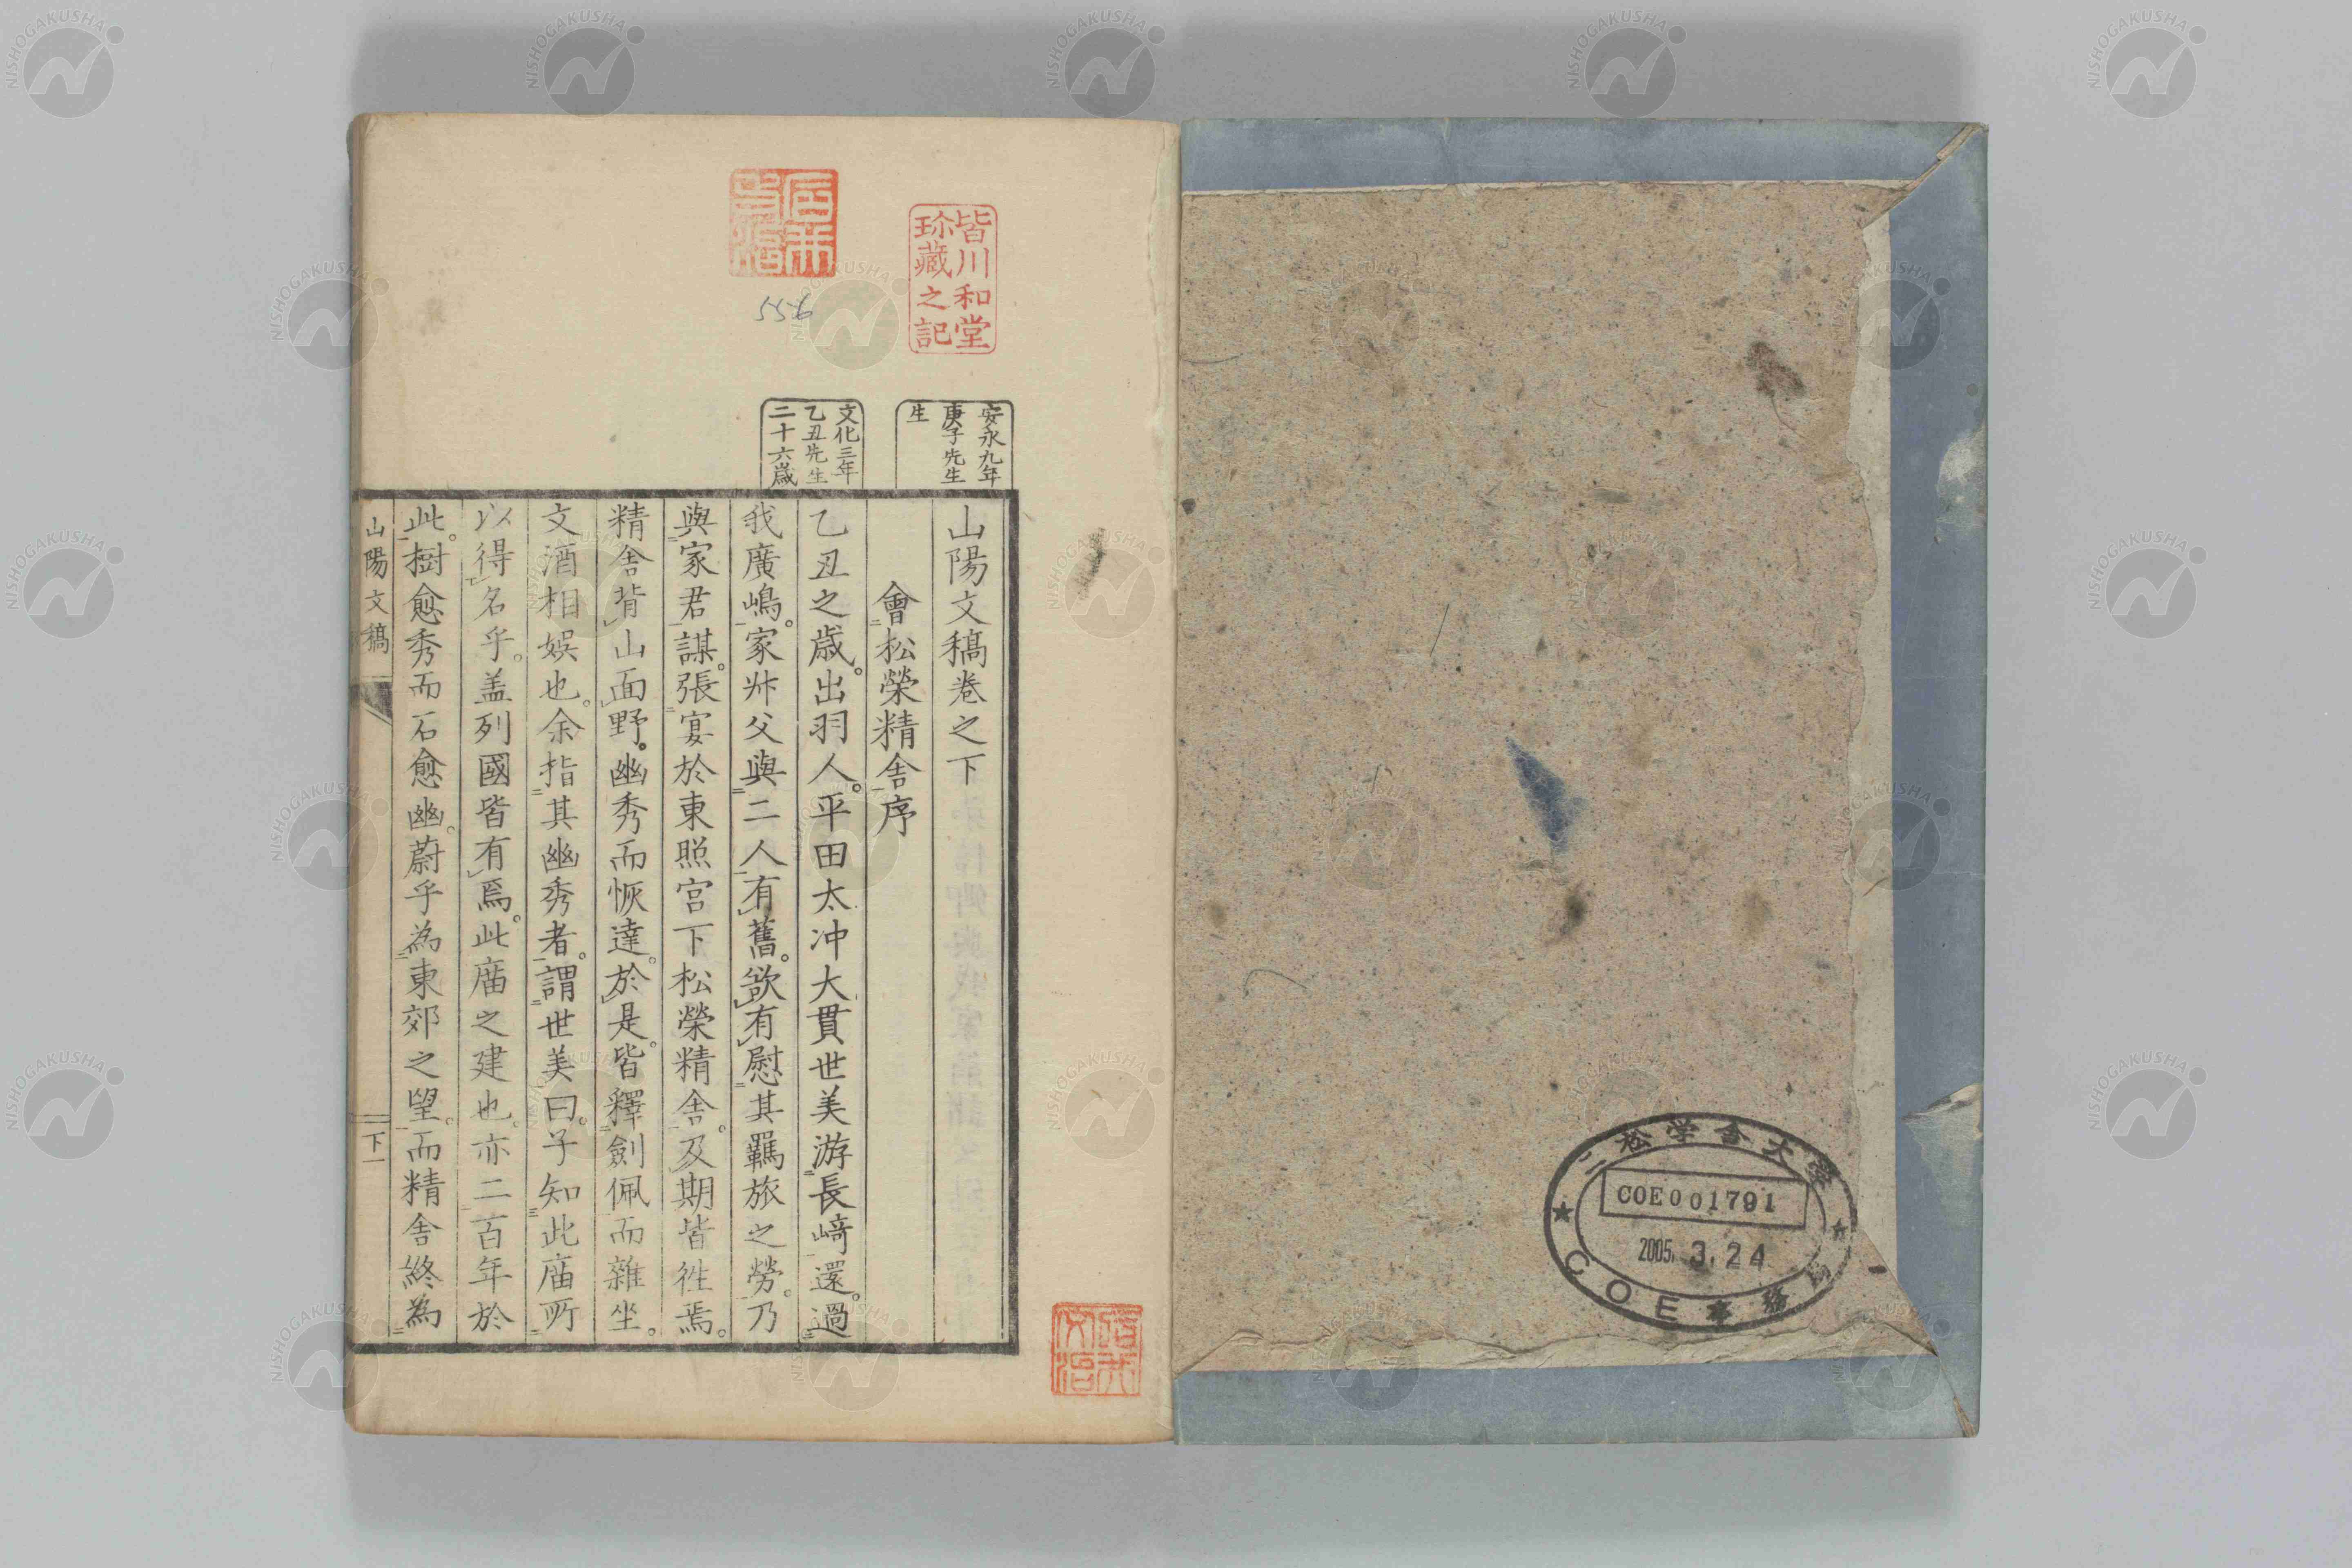 二松学舎大学
COE001791
2005. 3. 24
COE事務局
皆川和堂
珍藏之記
556
安永九年
庚子先生
生
文化三年
乙丑先生
二十六歳
山陽文稿卷之下
會松榮精舎序
乙丑之歳。出羽人。平田太冲大貫世美游長﨑還。過
我廣嶋。家叔父與二人有舊。欲有慰其羈旅之勞。乃
與家君謀。張宴於東照宮下松榮精舎。及期皆徃焉。
精舎背山面野。幽秀而恢達。於是。皆釋劍佩而雜坐。
文酒相娯也。余指其幽秀者。謂世美曰。子知此庿所
以得名乎。盖列國皆有焉。此庿之建也。亦二百年於
此。樹愈秀而石愈幽。蔚乎為東郊之望。而精舎終為
山陽文稿
下一
NISHOGAKUSHA